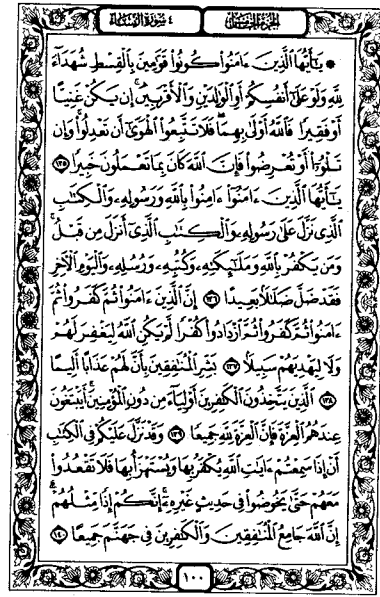 الجزء الخامس
٤ سورة النساء
۞ يَٰٓأَيُّهَا ٱلَّذِينَ ءَامَنُوا۟ كُونُوا۟ قَوَّٰمِينَ بِٱلْقِسْطِ شُهَدَآءَ
لِلَّهِ وَلَوْ عَلَىٰٓ أَنفُسِكُمْ أَوِ ٱلْوَٰلِدَيْنِ وَٱلْأَقْرَبِينَ ۚ إِن يَكُنْ غَنِيًّا
أَوْ فَقِيرًا فَٱللَّهُ أَوْلَىٰ بِهِمَا ۖ فَلَا تَتَّبِعُوا۟ ٱلْهَوَىٰٓ أَن تَعْدِلُوا۟ ۚ وَإِن
تَلْوُۥٓا۟ أَوْ تُعْرِضُوا۟ فَإِنَّ ٱللَّهَ كَانَ بِمَا تَعْمَلُونَ خَبِيرًا ١٣٥
يَٰٓأَيُّهَا ٱلَّذِينَ ءَامَنُوٓا۟ ءَامِنُوا۟ بِٱللَّهِ وَرَسُولِهِۦ وَٱلْكِتَٰبِ
ٱلَّذِى نَزَّلَ عَلَىٰ رَسُولِهِۦ وَٱلْكِتَٰبِ ٱلَّذِىٓ أَنزَلَ مِن قَبْلُ ۚ
وَمَن يَكْفُرْ بِٱللَّهِ وَمَلَٰٓئِكَتِهِۦ وَكُتُبِهِۦ وَرُسُلِهِۦ وَٱلْيَوْمِ ٱلْءَاخِرِ
فَقَدْ ضَلَّ ضَلَٰلًۢا بَعِيدًا ١٣٦ إِنَّ ٱلَّذِينَ ءَامَنُوا۟ ثُمَّ كَفَرُوا۟ ثُمَّ
ءَامَنُوا۟ ثُمَّ كَفَرُوا۟ ثُمَّ ٱزْدَادُوا۟ كُفْرًا لَّمْ يَكُنِ ٱللَّهُ لِيَغْفِرَ لَهُمْ
وَلَا لِيَهْدِيَهُمْ سَبِيلًۢا ١٣٧ بَشِّرِ ٱلْمُنَٰفِقِينَ بِأَنَّ لَهُمْ عَذَابًا أَلِيمًا
١٣٨ ٱلَّذِينَ يَتَّخِذُونَ ٱلْكَٰفِرِينَ أَوْلِيَآءَ مِن دُونِ ٱلْمُؤْمِنِينَ ۚ أَيَبْتَغُونَ
عِندَهُمُ ٱلْعِزَّةَ فَإِنَّ ٱلْعِزَّةَ لِلَّهِ جَمِيعًا ١٣٩ وَقَدْ نَزَّلَ عَلَيْكُمْ فِى ٱلْكِتَٰبِ
أَنْ إِذَا سَمِعْتُمْ ءَايَٰتِ ٱللَّهِ يُكْفَرُ بِهَا وَيُسْتَهْزَأُ بِهَا فَلَا تَقْعُدُوا۟
مَعَهُمْ حَتَّىٰ يَخُوضُوا۟ فِى حَدِيثٍ غَيْرِهِۦٓ ۚ إِنَّكُمْ إِذًا مِّثْلُهُمْ ۗ
إِنَّ ٱللَّهَ جَامِعُ ٱلْمُنَٰفِقِينَ وَٱلْكَٰفِرِينَ فِى جَهَنَّمَ جَمِيعًا ١٤٠
١٠٠